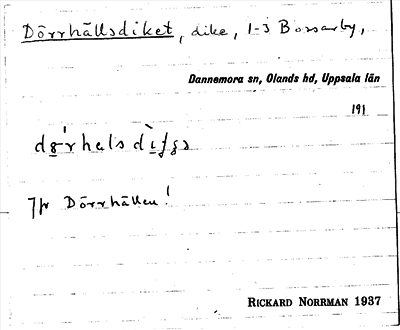 Dörrhällsdiket, dike, 1-3 Bossarby,
Dannemora sn, Olands hd, Uppsala län
191
Jfr Dörrhällen!
RICKARD NORRMAN 1937